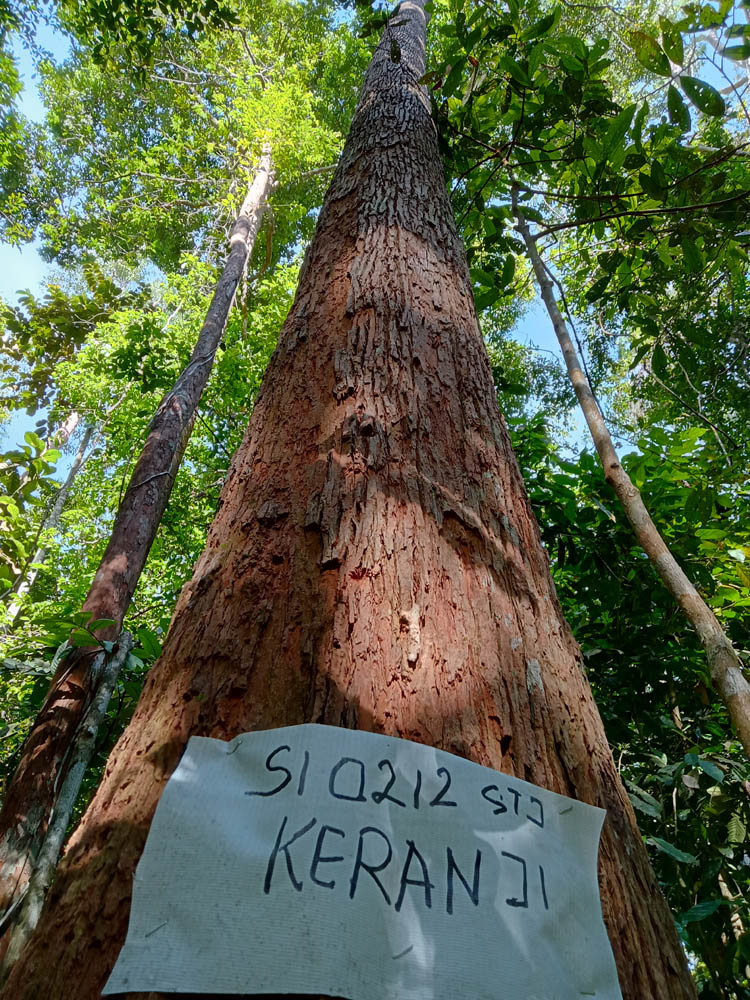 S1 0212 STJ
KERANJI